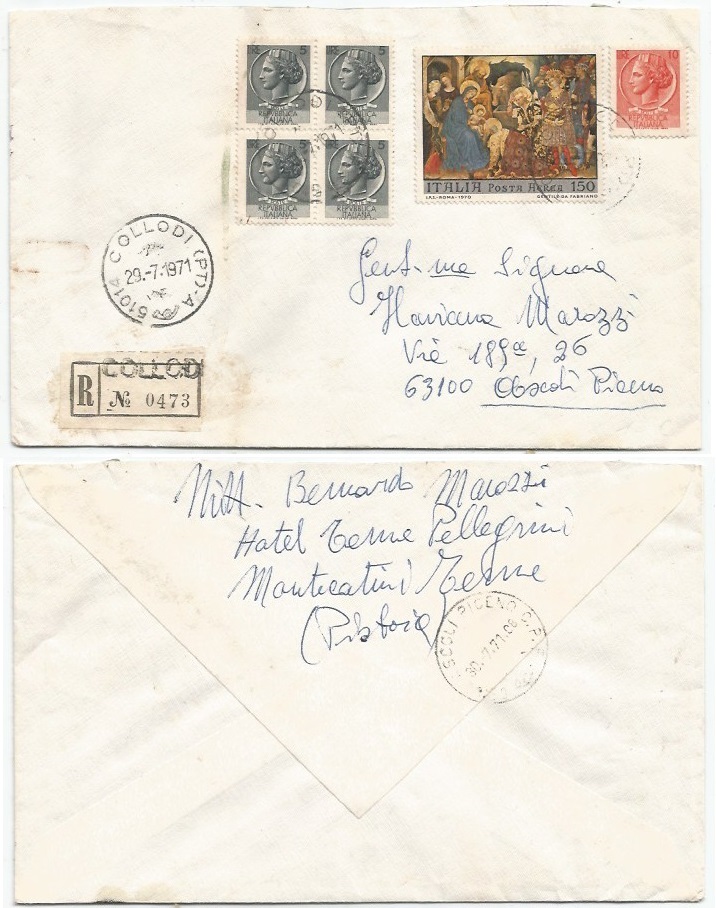 5 5
REPVBBLICA ITALIANA REPVBBLICA ITALIANA
5 5
REPVBBLICA ITALIANA REPVBBLICA ITALIANA
ITALIA POSTA AEREA 150
I.P.S.-ROMA-1970 GENTILE DA FABRIANO
10
REPVBBLICA ITALIANA
51014 COLLODI (PT)-A
29.-7.1971
COLLODI
R № 0473
Gent.ma Signora
Flaviana Marozzi
Via 189a, 26
63100 Ascoli Piceno
Mitt. Bernardo Marozzi
Hotel Terme Pellegrini
Montecatini Terme
(Pistoia)
SCOLI PICENO C.P.
30.-7.71.06